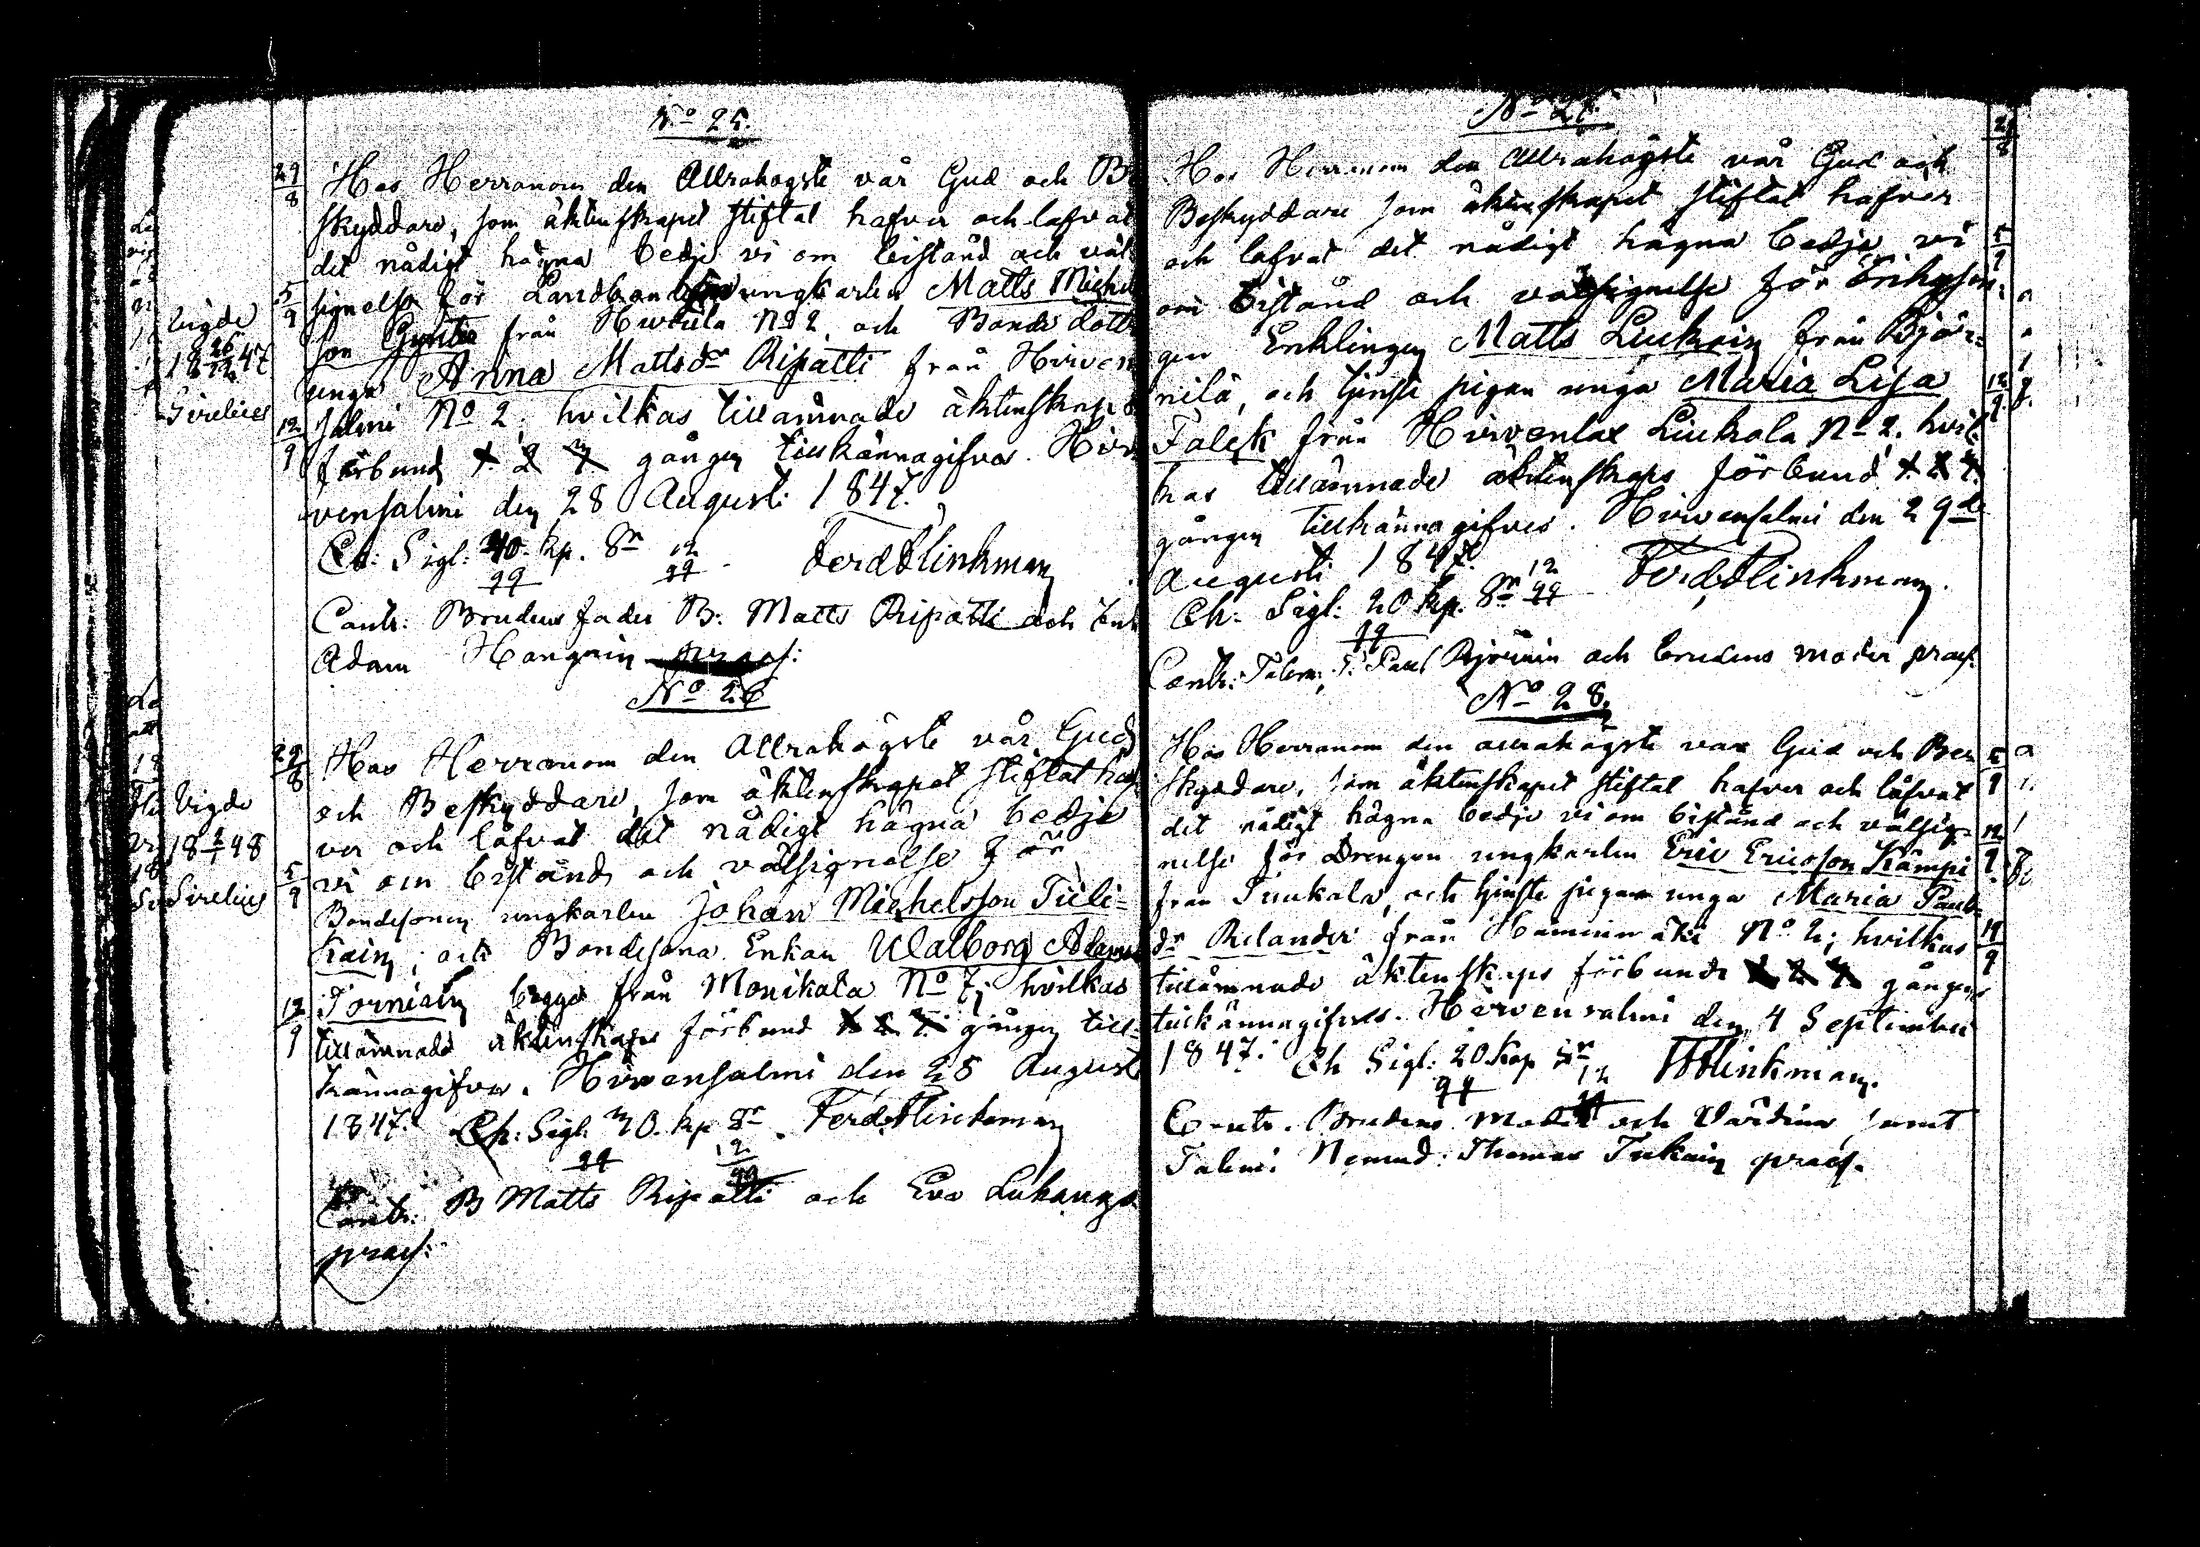 No 25.
29/8
Hos Herranom den Allrahögste vår Gud och Be
skyddare, som äktenskapet stiftat hafver och lofvat
det nådigt hägna bedje vi om bistånd och väl
5/9
signelse för ungkarlen Matts Michels
son från No 2 och Bonde dott
unga Anna Mattsdr Ripatti från Hirven
12/9
salmi No 2. hvilkas tillämnade äktenskaps
förbund 1. 2 3 gången tillkännagifves. Hir
vensalmi den 28 Augusti 1847.
Ch: Sigl: kp. Sr Ferd Flinkman
Contr: Brudens fader B: Matts Ripatti och
Adam præs:
Vigde
18 26/12 47
Sirelius
No 26
29/8
Hos Herranom den Allrahögste vår Gud
och Beskyddare, som äktenskapet stiftat haf
ver och låfvat det nådigt hägna bedje
5/9
vi om bistånd och välsignelse för
Bondesonen ungkarlen Johan Michelsson Tili-
kain; och Bondesona Enkan Walborg Adams
12/9
Torniain begge från Monikala No 7; hvilkas
tillämnade äktenskaps förbund 1 2 3 gången till-
kännagifves. Hirvensalmi den 28 August
1847. Ch: Sigl. 30. kp Sr. Ferd. Flinkman
Contr: B Matts Ripatti och Eva
præs:
Vigde
Sirelius
No 27.
Hos Herranom den Allrahögste vår Gud och
Beskyddare som äktenskapet stiftat hafver
och lofvat det nådigt hägna bedje vi
5/9
om bistånd och välsignelse för
Enklingen Matts Liukain från Björ-
nilä, och tjenste pigan unga Maria Lisa
12/9
Falck från Hirvenlax Liukola No 2. hvil-
kas tillämnade äktenskaps förbund 1. 2 3.
gången tillkännagifves. Hirvensalmi den 29de
Augusti 1847. Ferd. Flinkman.
Ch: Sigl: 20 kp. Sr
Contr: Paul Björnin och brudens moder præs.
No 28.
Hos Herranom den allrahögste vår Gud och Be-
5/9
skyddare, som äktenskapet stiftat hafver och låfvat
det nådigt hägna bedje vi om bistånd och välsig-
12/9
nelse för Drengen ungkarlen Eric Ericsson Kämpi
från och tjenste pigan unga Maria Pauls
19/9
dr Relander från No 2; hvilkas
tillämnade äktenskaps förbund 1 2 3 gången
tillkännagifves. Hirvensalmi den 4 September
1847. Ch Sigl: 20 kop Sr Flinkman.
Contr. Brudens Moder och Värdina, samt
Talem: Nemnd: Thomas præs.